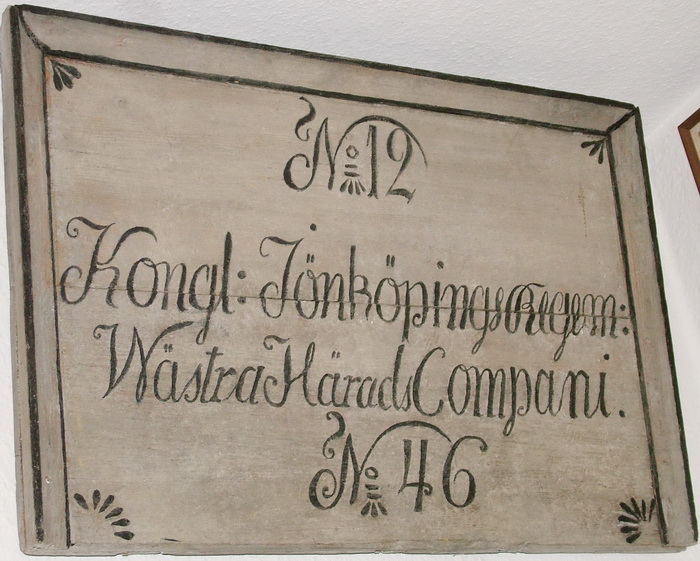 No 12
Kongl: Jönköpings Regem:
Wästra Härads Compani.
No 46